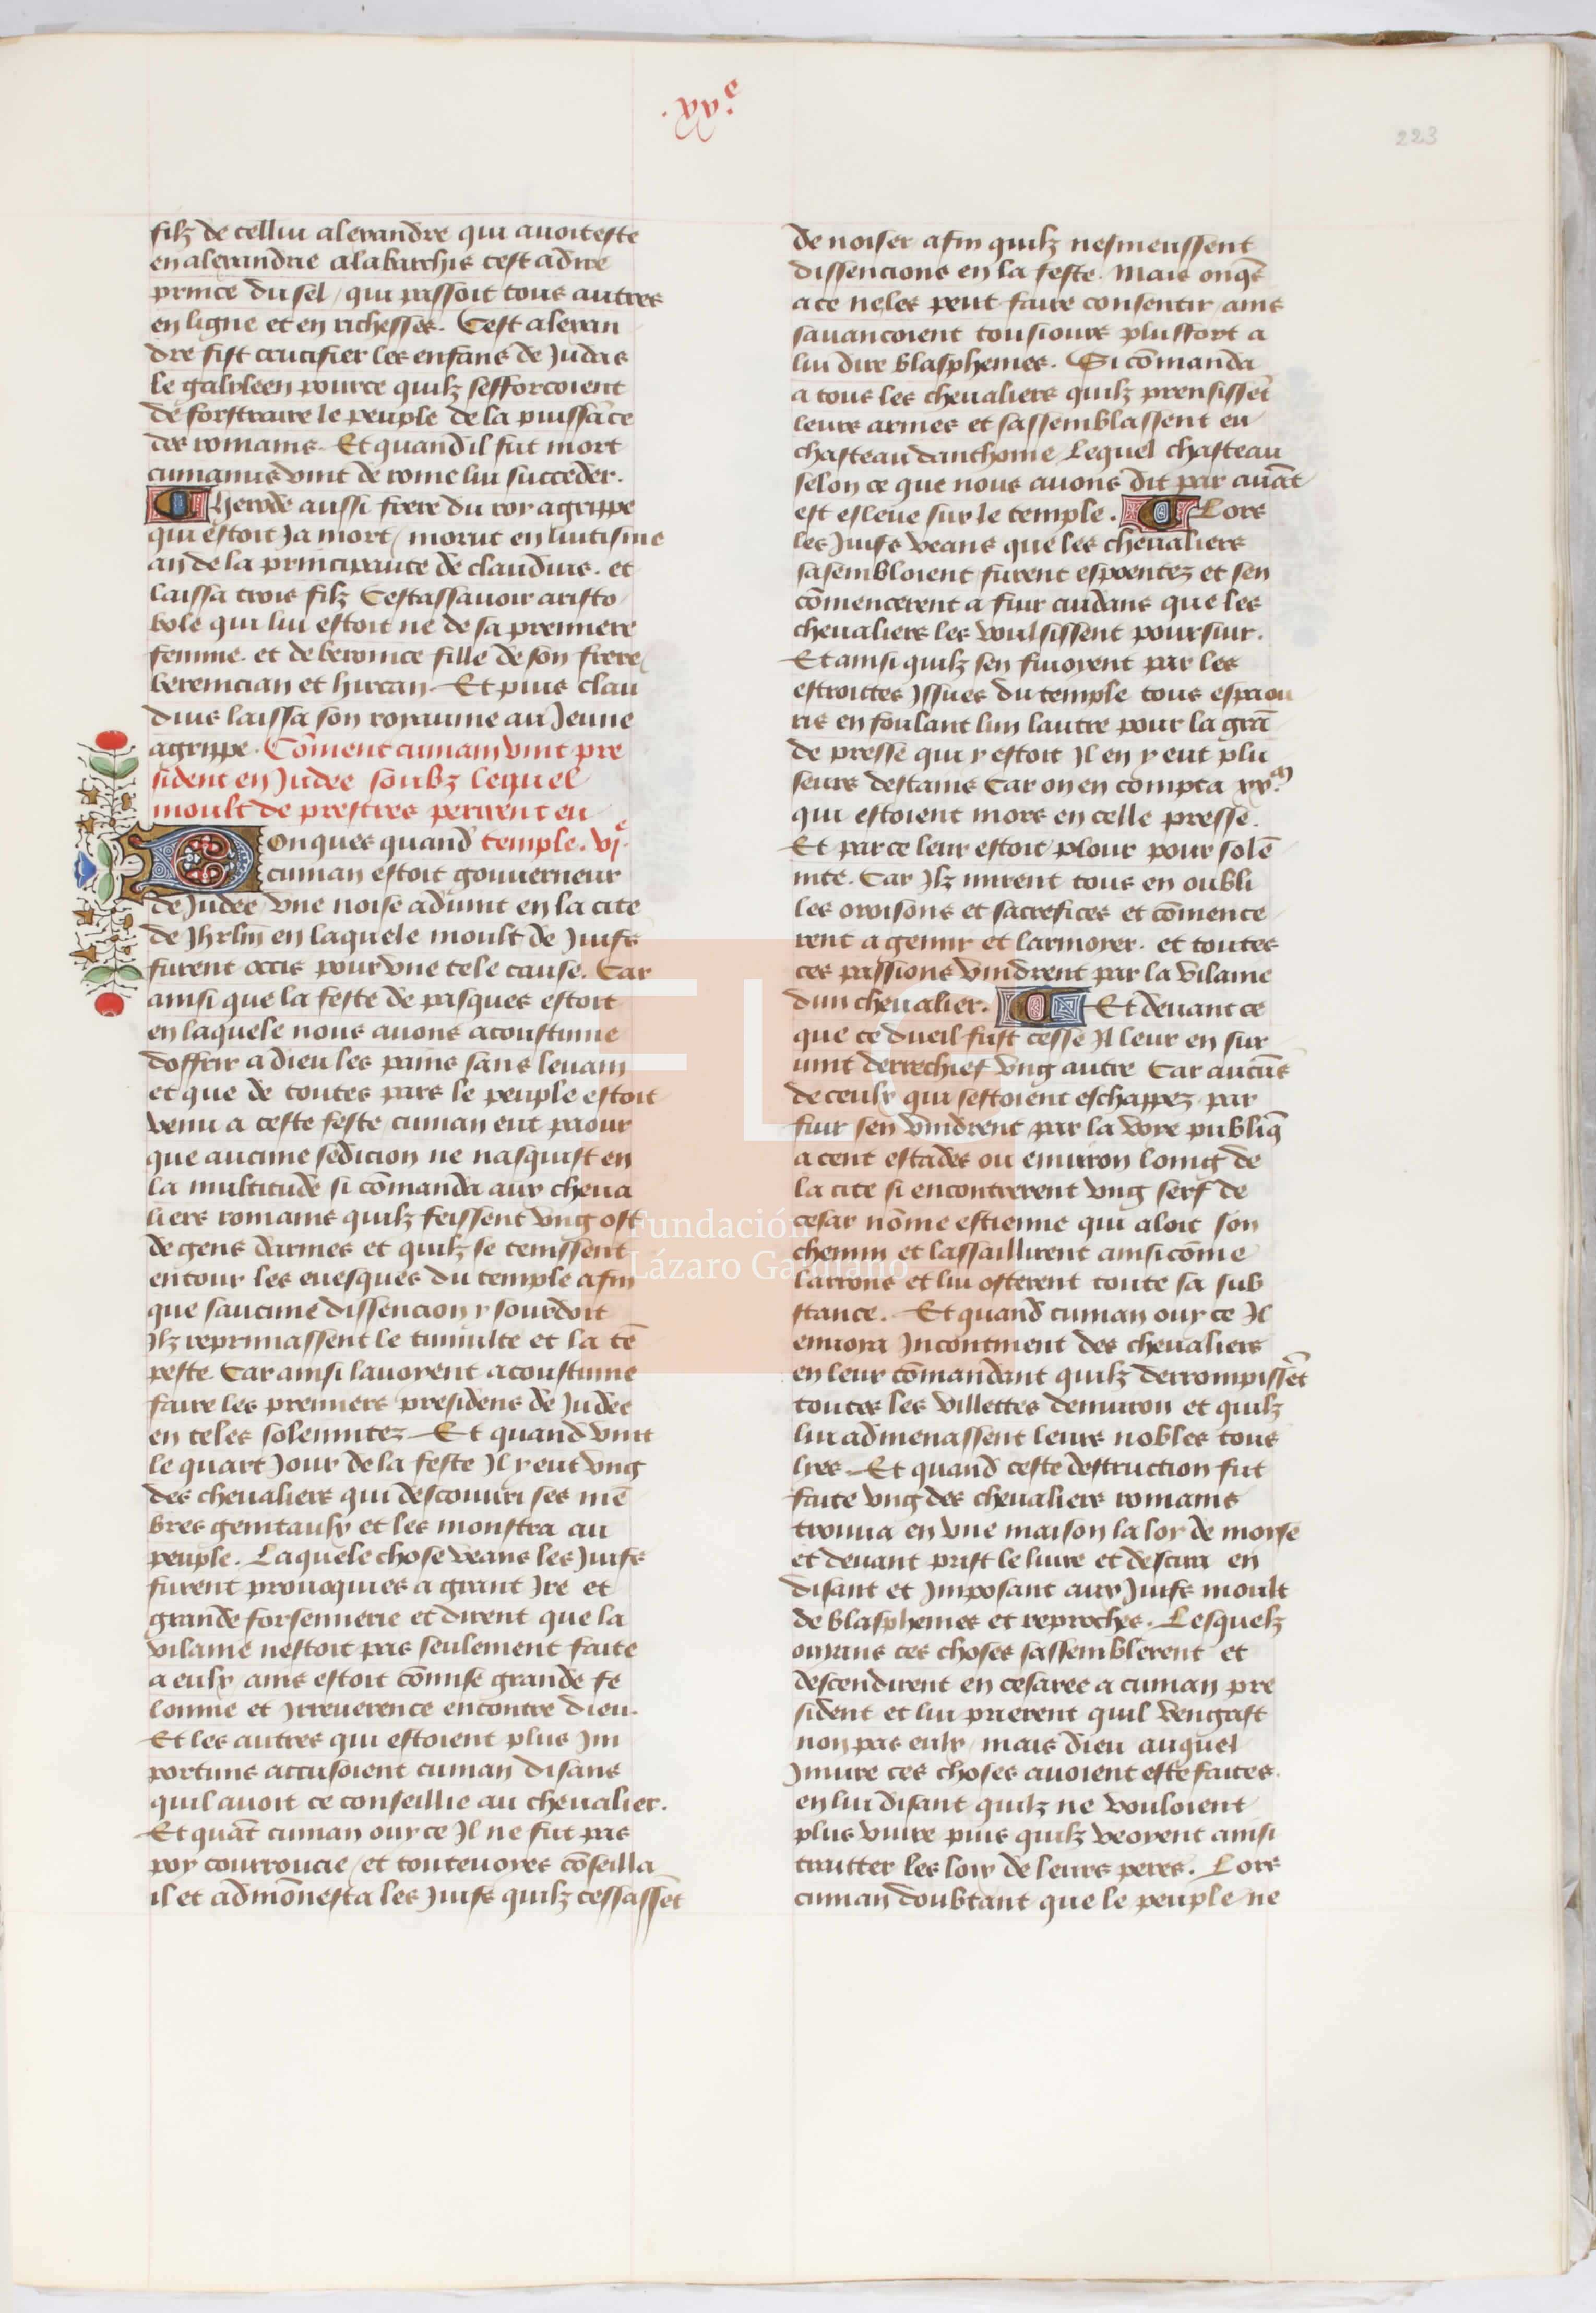 .xx.e
223
filz de cellui alexandre qui auoit este
en alexandrie alabarchis cest adire
prince du sel / qui passoit tous autres
en ligne et en richesses. Cest alexan
dre fist crucifier les enfans de Judas
le galyleen pource quilz sefforcoient
de forstraire le peuple de la puissāce
des romains. Et quand il fut mort
cumanus vint de rome lui succeder.
Herode aussi frere du roy agrippe
qui estoit Ja mort / morut en luitisme
an de la principaute de claudius. et
laissa trois filz Cestassauoir aristo
bole qui lui estoit ne de sa premiere
femme. et de beronice fille de son frere /
berenician et hircan. Et puis clau
dius laissa son royaume au Jeune
agrippe. Cōment cumain vint pre
sident en Judee soubz lequel
moult de prestres perirent en
Donques quand temple. vje.
cuman estoit gouuerneur
de Judee vne noise aduint en la cite
de Jhrlm̄ en laquele moult de Juifs
furent occis pour vne tele cause. Car
ainsi que la feste de pasques estoit
en laquele nous auons acoustume
doffrir a dieu les pains sans leuain
et que de toutes pars le peuple estoit
venu a ceste feste / cuman eut paour
que aucune sedicion ne nasquist en
la multitude si cōmanda aux cheua
liers romains quilz feissent vng ost
de gens darmes et quilz se tenissent
entour les euesques du temple afin
que saucune dissencion y sourdoit
Ilz reprimassent le tumulte et la tē
peste. Car ainsi lauoyent acoustume
faire les premiers presidens de Judee
en teles solemnitez. Et quand vint
le quart Jour de la feste Il y eut vng
des cheualiers qui descouuri ses mē
bres genitaulx et les monstra au
peuple. Laquele chose veans les Juifs
furent prouoquies a grant Ire et
grande forsennerie et dirent que la
vilanie nestoit pas seulement faite
a eulx ains estoit cōmise grande fe
lonnie et Irreuerence encontre dieu.
Et les autres qui estoient plus Im
portuns accusoient cuman disans
quil auoit ce conseillie au cheualier.
Et quāt cuman ouy ce Il ne fut pas
poy courroucie / et toutevoyes cōseilla
il et admōnesta les Juifs quilz cessassēt
de noiser afin quilz nesmeussent
dissencions en la feste. Mais onqs̄
a ce ne les peut faire consentir / ains
sauancoient tousiours plus fort a
lui dire blasphemes. Si cōmanda
a tous les cheualiers quilz prensissēt
leurs armes et sassemblassent eu
chasteau danthoine Lequel chasteau
selon ce que nous auons dit par auāt
est esleue sur le temple. Lors
les Juifs veans que les cheualiers
sasembloient furent espoentez et sen
cōmencerent a fuir cuidans que les
cheualiers les voulsissent poursiuir.
Et ainsi quilz sen fuioyent par les
estroittes Issues du temple tous espaou
ris en foulant lun lautre pour la grā
de presse qui y estoit Il en y eut plu
seurs destains Car on en compta xx.m
qui estoient mors en celle presse.
Et par ce leur estoit plour pour solē
nite. Car Ilz mirent tous en oubli
les oroisons et sacrefices et cōmence
rent a gemir et larmoyer. et toutes
ces passions vindrent par la vilanie
dun cheualier. Et deuant ce
que ce dueil fust cesse Il leur en sur
uint derrechief vng autre Car aucūs
de ceulx qui sestoient eschappez par
fuir sen vindrent par la voye publiq̄
a cent estades ou enuiron loing de
la cite si encontrerent vng serf de
cesar nōme estienne qui aloit son
chemin et lassaillirent ainsi cōme
larrons et lui osterent toute sa sub
stance. Et quand cuman ouy ce Il
enuoia Incontinent des cheualiers
en leur cōmandant quilz derrompissēt
toutes les villettes denuiron et quilz
lui admenassent leurs nobles tous
lyes. Et quand ceste destruction fut
faite vng des cheualiers romains
trouua en vne maison la loy de moyse
et deuant prist le liure et descira en
disant et Imposant aux Juifs moult
de blasphemes et reproches. Lesquelz
oyans ces choses sassemblerent et
descendirent en cesaree a cuman pre
sident et lui prierent quil vengast
non pas eulx / mais dieu auquel
Iniure ces choses auoient este faites.
en lui disant quilz ne vouloient
plus viure puis quilz veoyent ainsi
traitter les loix de leurs peres. Lors
cuman doubtant que le peuple ne
FLG
Fundación
Lázaro Galdiano